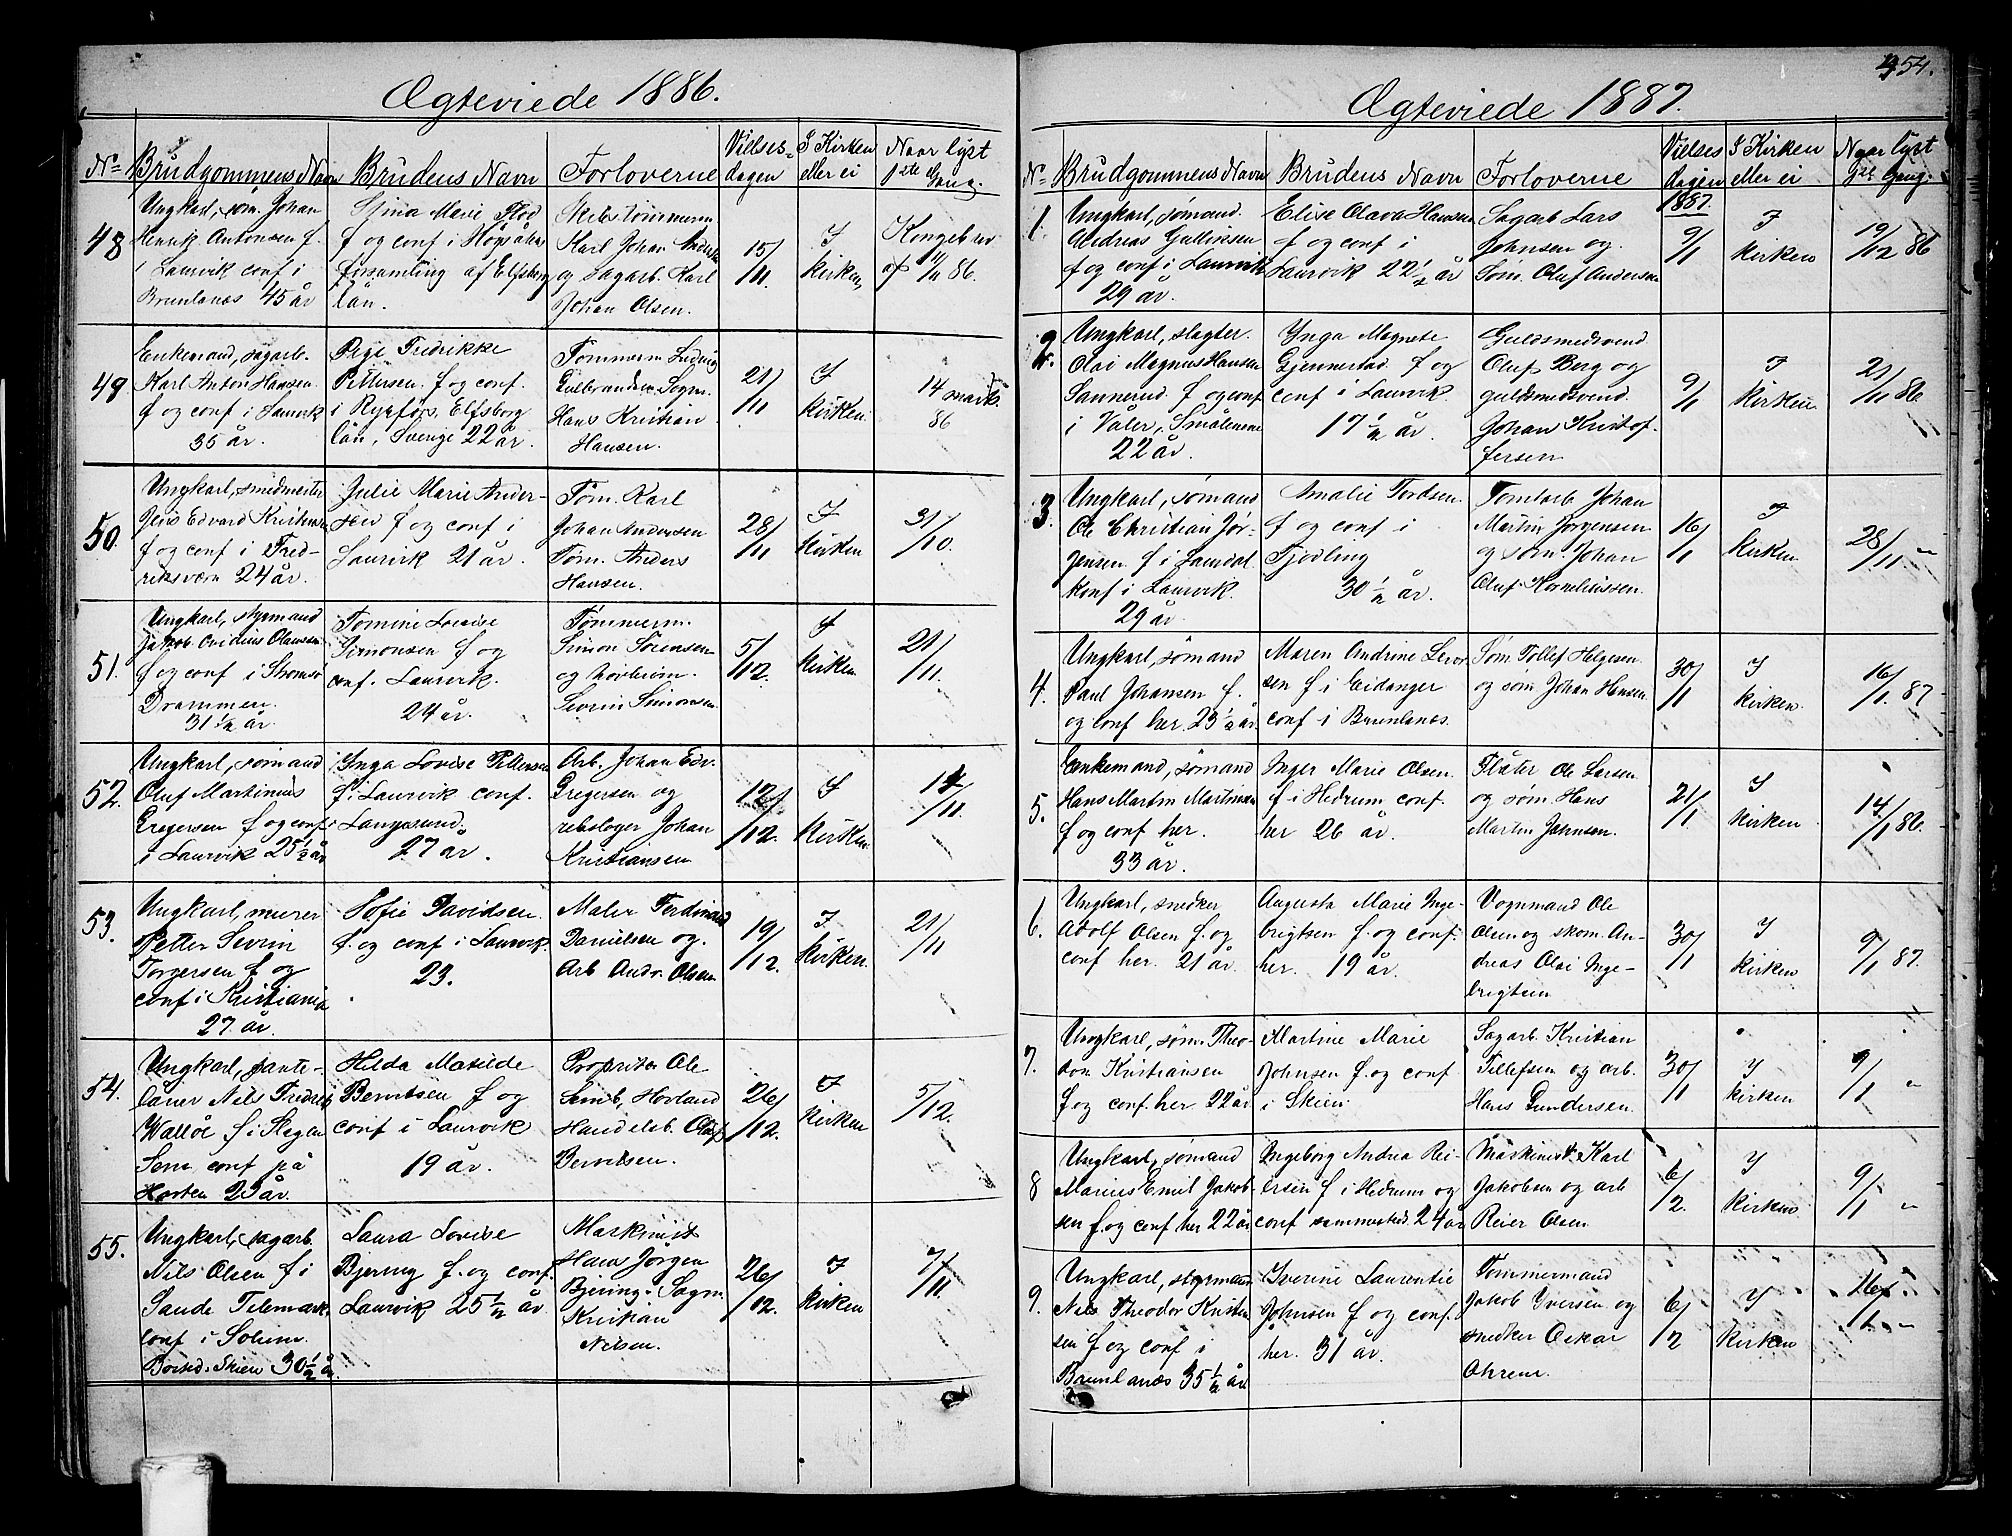 Ægteviede 1886.
No Brudgommens Navn Brudens Navn Forloverne Vielses-dagen I Kirken eller ei Naar lyst 1ste Gang.
48
Ungkarl, søm. Johan
Henrik Antonsen f.
i Laurvik conf i
Brunlanæs 45 år
Stina Marie Flod
f og conf i Högsäter
forsamling af Elfsborg
län.
Skibstømmerm.
Karl Johan Anders
og sagarb. Karl
Johan Olsen.
15/11
I
kirken
Kongebrev
af 11/11 86.
49.
Enkemand, sagarb.
Karl Anton Hansen
f og conf i Laurvik
35 år.
Fredrikke
Pettersen. f og conf.
i Elfsborg
län, Sverige 22 år.
Tømmerm Ludvig
Gulbrandsen Sogn.
Hans Kristian
Hansen.
21/11
I
kirken.
14 mark.
86
50.
Ungkarl, smedmester
Jens Edvard Kristensen
f og conf i Fred-
riksværn 24 år.
Julie Marie Ander-
sen f og conf i
Laurvik 21 år.
Tøm. Karl
Johan Andersen
Tøm. Anders
Hansen.
28/11
I
kirken
31/10.
51.
Ungkarl, styrmand
Jakob Ovidius Olaussen
f og conf i Strømsø
Drammen.
31 1/2 år.
Tomine Lovise
Simonsen f og
conf. Laurvik.
24 år.
Tømmerm.
Simon Sørensen
og
Severin Simonsen
5/12.
I
kirken
21/11.
52.
Ungkarl, sømand
Oluf Martinius
Gregersen f og conf
i Laurvik 25 1/2 år
Inga Lovise Pettersen
f i Laurvik conf.
i Langesund.
27 år.
Arb. Johan Edv.
Gregersen og
rebslager Johan
Kristiansen
12/12.
I
kirken.
14/11.
53.
Ungkarl, murer
Petter Severin
Torgersen f og
conf i Kristiania
27 år.
Sofie Davidsen
f. og conf i Laurvik.
23.
Maler Ferdinand
Danielsen og.
Arb Andr. Olsen
19/12.
I
kirken.
21/11
54.
Ungkarl, pante-
låner Nils Fredrik
Walløe f i Slagen
Sem, conf på
Horten 25 år.
Hilda Matilde
Berntsen f og
conf i Laurvik
19 år.
Propritær Ole
Semb, Hovland
Handelsb. Oluf
Berntsen.
26/12.
I
kirken
5/12.
55.
Ungkarl, sagarb.
Nils Olsen f i
Saude Telemark.
conf i Solum.
Bosid. Skien 30 1/2 år.
Laura Lovise
Bjering f. og conf.
Laurvik 25 1/2 år.
Maskinist
Hans Jörgen
Bjering. Sagm.
Kristian
Nilsen.
26/12.
I
kirken
7/11.
454.
Ægteviede 1887.
No Brudgommens Navn Brudens Navn Forloverne Vielses dagen I Kirken eller ei Naar lyst 1ste Gang.
1887.
1.
Ungkarl, sømand.
Andreas Gulliksen
f og conf i Laurvik
29 år.
Elise Olava Hansen
f og conf i
Laurvik 22 1/2 år
Sagarb Lars
Johnsen og
Søm. Oluf Andersen
9/1
I
kirken
19/12 86
2.
Ungkarl, slagter.
Olai Magnus Hansen
Sannerud. f og conf
i Våler, Smålenene
22 år.
Ynga Magnete
Gjennestad f og
conf i Laurvik.
17 1/2 år.
Guldsmedsvend
Oluf Berg og
guldsmedsvend.
Johan Kristof-
fersen
9/1
I
kirken
21/11 86
3.
Ungkarl, sømand
Ole Christian Jør-
gensen f i Laurdal
konf i Laurvik.
29 år.
Amalie Tordsen
f og conf i
Tjødling
30 1/2 år.
Tomtarb Johan
Martin Jørgensen
og søm. Johan
Oluf Korneliussen.
16/1
I
kirken
28/11 "
4.
Ungkarl, sømand
Paul Johansen f.
og conf her 23 1/2 år.
Maren Andrine
sen f i Eidanger
conf i Brunlanæs.
Søm Tollef Helgesen
og søm Johan Hansen
30/1
I
kirken.
16/1. 87
5.
Enkemand, sømand
Hans Martin Martinsen
f og conf her.
33 år.
Inger Marie Olsen.
f i Hedrum conf.
her 26 år.
Fløter Ole Larsen
og søm. Hans
Martin Johnsen.
21/1
I
kirken
14/1 86.
6.
Ungkarl, snedker
Adolf Olsen f. og
conf her. 21 år.
Augusta Marie Inge-
brigtsen f. og conf.
her. 19 år.
Vognmand Ole
Olsen og skom. An-
dreas Olai Inge-
brigtsen
30/1
I
kirken
9/1 87.
7.
Ungkarl, søm. Theo-
dor Kristiansen
f og conf. her 22 år
Martine Marie
Johnsen f. og conf
i Skien
Sagarb. Kristian
Tellefsen og arb.
Hans Gundersen.
30/1
I
kirken
9/1 "
8
Ungkarl, sømand
Marius Emil Jakob-
sen f. og conf her 22 år
Ingeborg Andrea Rei-
ersen f i Hedrum og
conf sammested. 24 år
Maskinist. Karl
Jakobsen og arb
Reier Olsen
6/2.
I
kirken
9/1 "
9.
Ungkarl, styrmand
Nils Theodor Kristen
sen f og conf i
Brunlanæs 35 1/2 år
Iverine Laurentie
Johnsen f og conf.
her. 31 år.
Tømmermand
Jakob Iversen og
snedker Oskar
Ahrent.
6/2
I
kirken
16/1. "